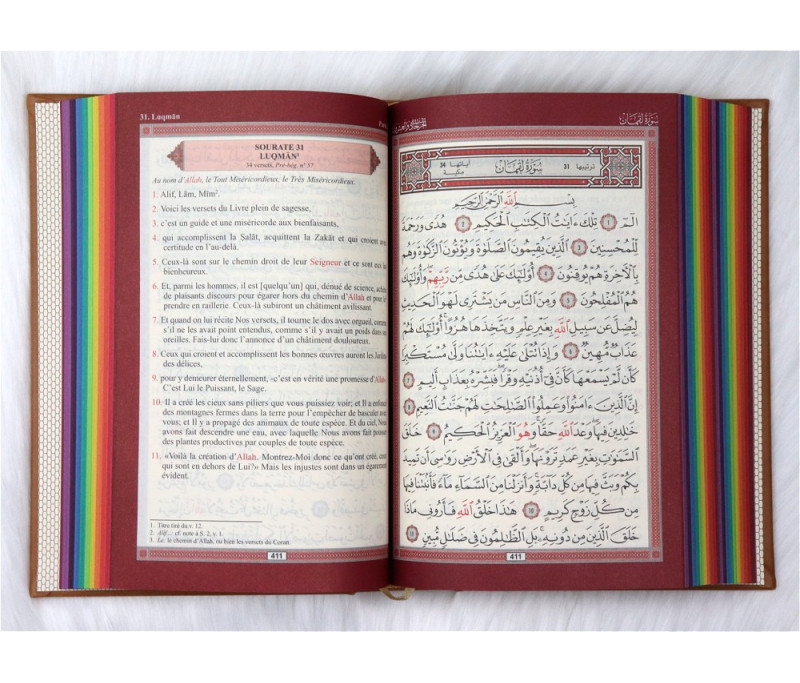 31. Luqmān
SOURATE 31
LUQMĀN¹
34 versets, Pré-hég. n° 57
Au nom d'Allah, le Tout Miséricordieux, le Très Miséricordieux.
1. Alif, Lām, Mīm².
2. Voici les versets du Livre plein de sagesse,
3. c'est un guide et une miséricorde aux bienfaisants,
4. qui accomplissent la Ṣalāt, acquittent la Zakāt et qui croient avec
certitude en l'au-delà.
5. Ceux-là sont sur le chemin droit de leur Seigneur et ce sont eux les
bienheureux.
6. Et, parmi les hommes, il est [quelqu'un] qui, dénué de science, achète
de plaisants discours pour égarer hors du chemin d'Allah et pour le
prendre en raillerie. Ceux-là subiront un châtiment avilissant.
7. Et quand on lui récite Nos versets, il tourne le dos avec orgueil, comme
s'il ne les avait point entendus, comme s'il y avait un poids dans ses
oreilles. Fais-lui donc l'annonce d'un châtiment douloureux.
8. Ceux qui croient et accomplissent les bonnes œuvres auront les Jardins
des délices,
9. pour y demeurer éternellement, «c'est en vérité une promesse d'Allah.
C'est Lui le Puissant, le Sage.
10. Il a créé les cieux sans piliers que vous puissiez voir; et Il a enfoncé
des montagnes fermes dans la terre pour l'empêcher de basculer avec
vous; et Il y a propagé des animaux de toute espèce. Et du ciel, Nous
avons fait descendre une eau, avec laquelle Nous avons fait pousser
des plantes productives par couples de toute espèce.
11. «Voilà la création d'Allah. Montrez-Moi donc ce qu'ont créé, ceux
qui sont en dehors de Lui?» Mais les injustes sont dans un égarement
évident.
1. Titre tiré du v. 12.
2. Alif... cf. note à S. 2, v. 1.
3. Le: le chemin d'Allah, ou bien les versets du Coran.
411
سورة لقمان
ترتيبها 31 سورة لقمان آياتها 34 مكية
بسم الله الرحمن الرحيم
الٓمٓ ١ تِلْكَ ءَايَٰتُ ٱلْكِتَٰبِ ٱلْحَكِيمِ ٢ هُدًى وَرَحْمَةً
لِّلْمُحْسِنِينَ ٣ ٱلَّذِينَ يُقِيمُونَ ٱلصَّلَوٰةَ وَيُؤْتُونَ ٱلزَّكَوٰةَ وَهُم
بِٱلْءَاخِرَةِ هُمْ يُوقِنُونَ ٤ أُوْلَٰٓئِكَ عَلَىٰ هُدًى مِّن رَّبِّهِمْ وَأُوْلَٰٓئِكَ
هُمُ ٱلْمُفْلِحُونَ ٥ وَمِنَ ٱلنَّاسِ مَن يَشْتَرِى لَهْوَ ٱلْحَدِيثِ
لِيُضِلَّ عَن سَبِيلِ ٱللَّهِ بِغَيْرِ عِلْمٍ وَيَتَّخِذَهَا هُزُوًا أُوْلَٰٓئِكَ لَهُمْ
عَذَابٌ مُّهِينٌ ٦ وَإِذَا تُتْلَىٰ عَلَيْهِ ءَايَٰتُنَا وَلَّىٰ مُسْتَكْبِرًا
كَأَن لَّمْ يَسْمَعْهَا كَأَنَّ فِىٓ أُذُنَيْهِ وَقْرًا فَبَشِّرْهُ بِعَذَابٍ أَلِيمٍ ٧
إِنَّ ٱلَّذِينَ ءَامَنُوا۟ وَعَمِلُوا۟ ٱلصَّٰلِحَٰتِ لَهُمْ جَنَّٰتُ ٱلنَّعِيمِ ٨
خَٰلِدِينَ فِيهَا وَعْدَ ٱللَّهِ حَقًّا وَهُوَ ٱلْعَزِيزُ ٱلْحَكِيمُ ٩ خَلَقَ
ٱلسَّمَٰوَٰتِ بِغَيْرِ عَمَدٍ تَرَوْنَهَا وَأَلْقَىٰ فِى ٱلْأَرْضِ رَوَٰسِىَ أَن تَمِيدَ
بِكُمْ وَبَثَّ فِيهَا مِن كُلِّ دَآبَّةٍ وَأَنزَلْنَا مِنَ ٱلسَّمَآءِ مَآءً فَأَنۢبَتْنَا فِيهَا
مِن كُلِّ زَوْجٍ كَرِيمٍ ١٠ هَٰذَا خَلْقُ ٱللَّهِ فَأَرُونِى مَاذَا
خَلَقَ ٱلَّذِينَ مِن دُونِهِۦ بَلِ ٱلظَّٰلِمُونَ فِى ضَلَٰلٍ مُّبِينٍ ١١
411